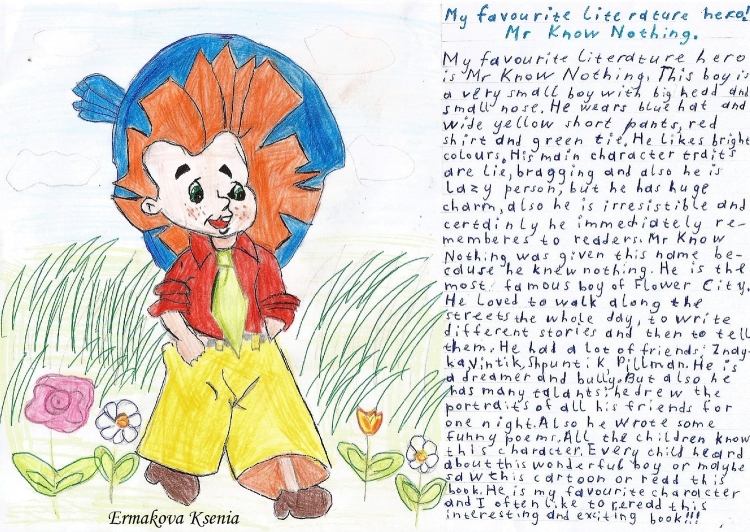 My favourite literature hero!
Mr Know Nothing.
My favourite literature hero
is Mr Know Nothing. This boy is
a very small boy with big head and
small nose. He wears blue hat and
wide yellow short pants, red
shirt and green tie. He likes bright
colours. His main character traits
are lie, bragging and also he is
lazy person, but he has huge
charm, also he is irresistible and
certainly he immediately re-
memberes to readers. Mr Know
Nothing was given this name be-
cause he knew nothing. He is the
most famous boy of Flower City.
He loved to walk along the
streets the whole day, to write
different stories and then to tell
them. He had a lot of friends: Znay-
ka, Vintik, Shpuntik Pillman. He is
a dreamer and bully. But also he
has many talants: he drew the
portraits of all his friends for
one night. Also he wrote some
funny poems. All the children know
this character. Every child heard
about this wonderful boy or maybe
saw this cartoon or read this
book. He is my favourite character
and I often like to reread this
interesting and exciting book!!!
Ermakova Ksenia